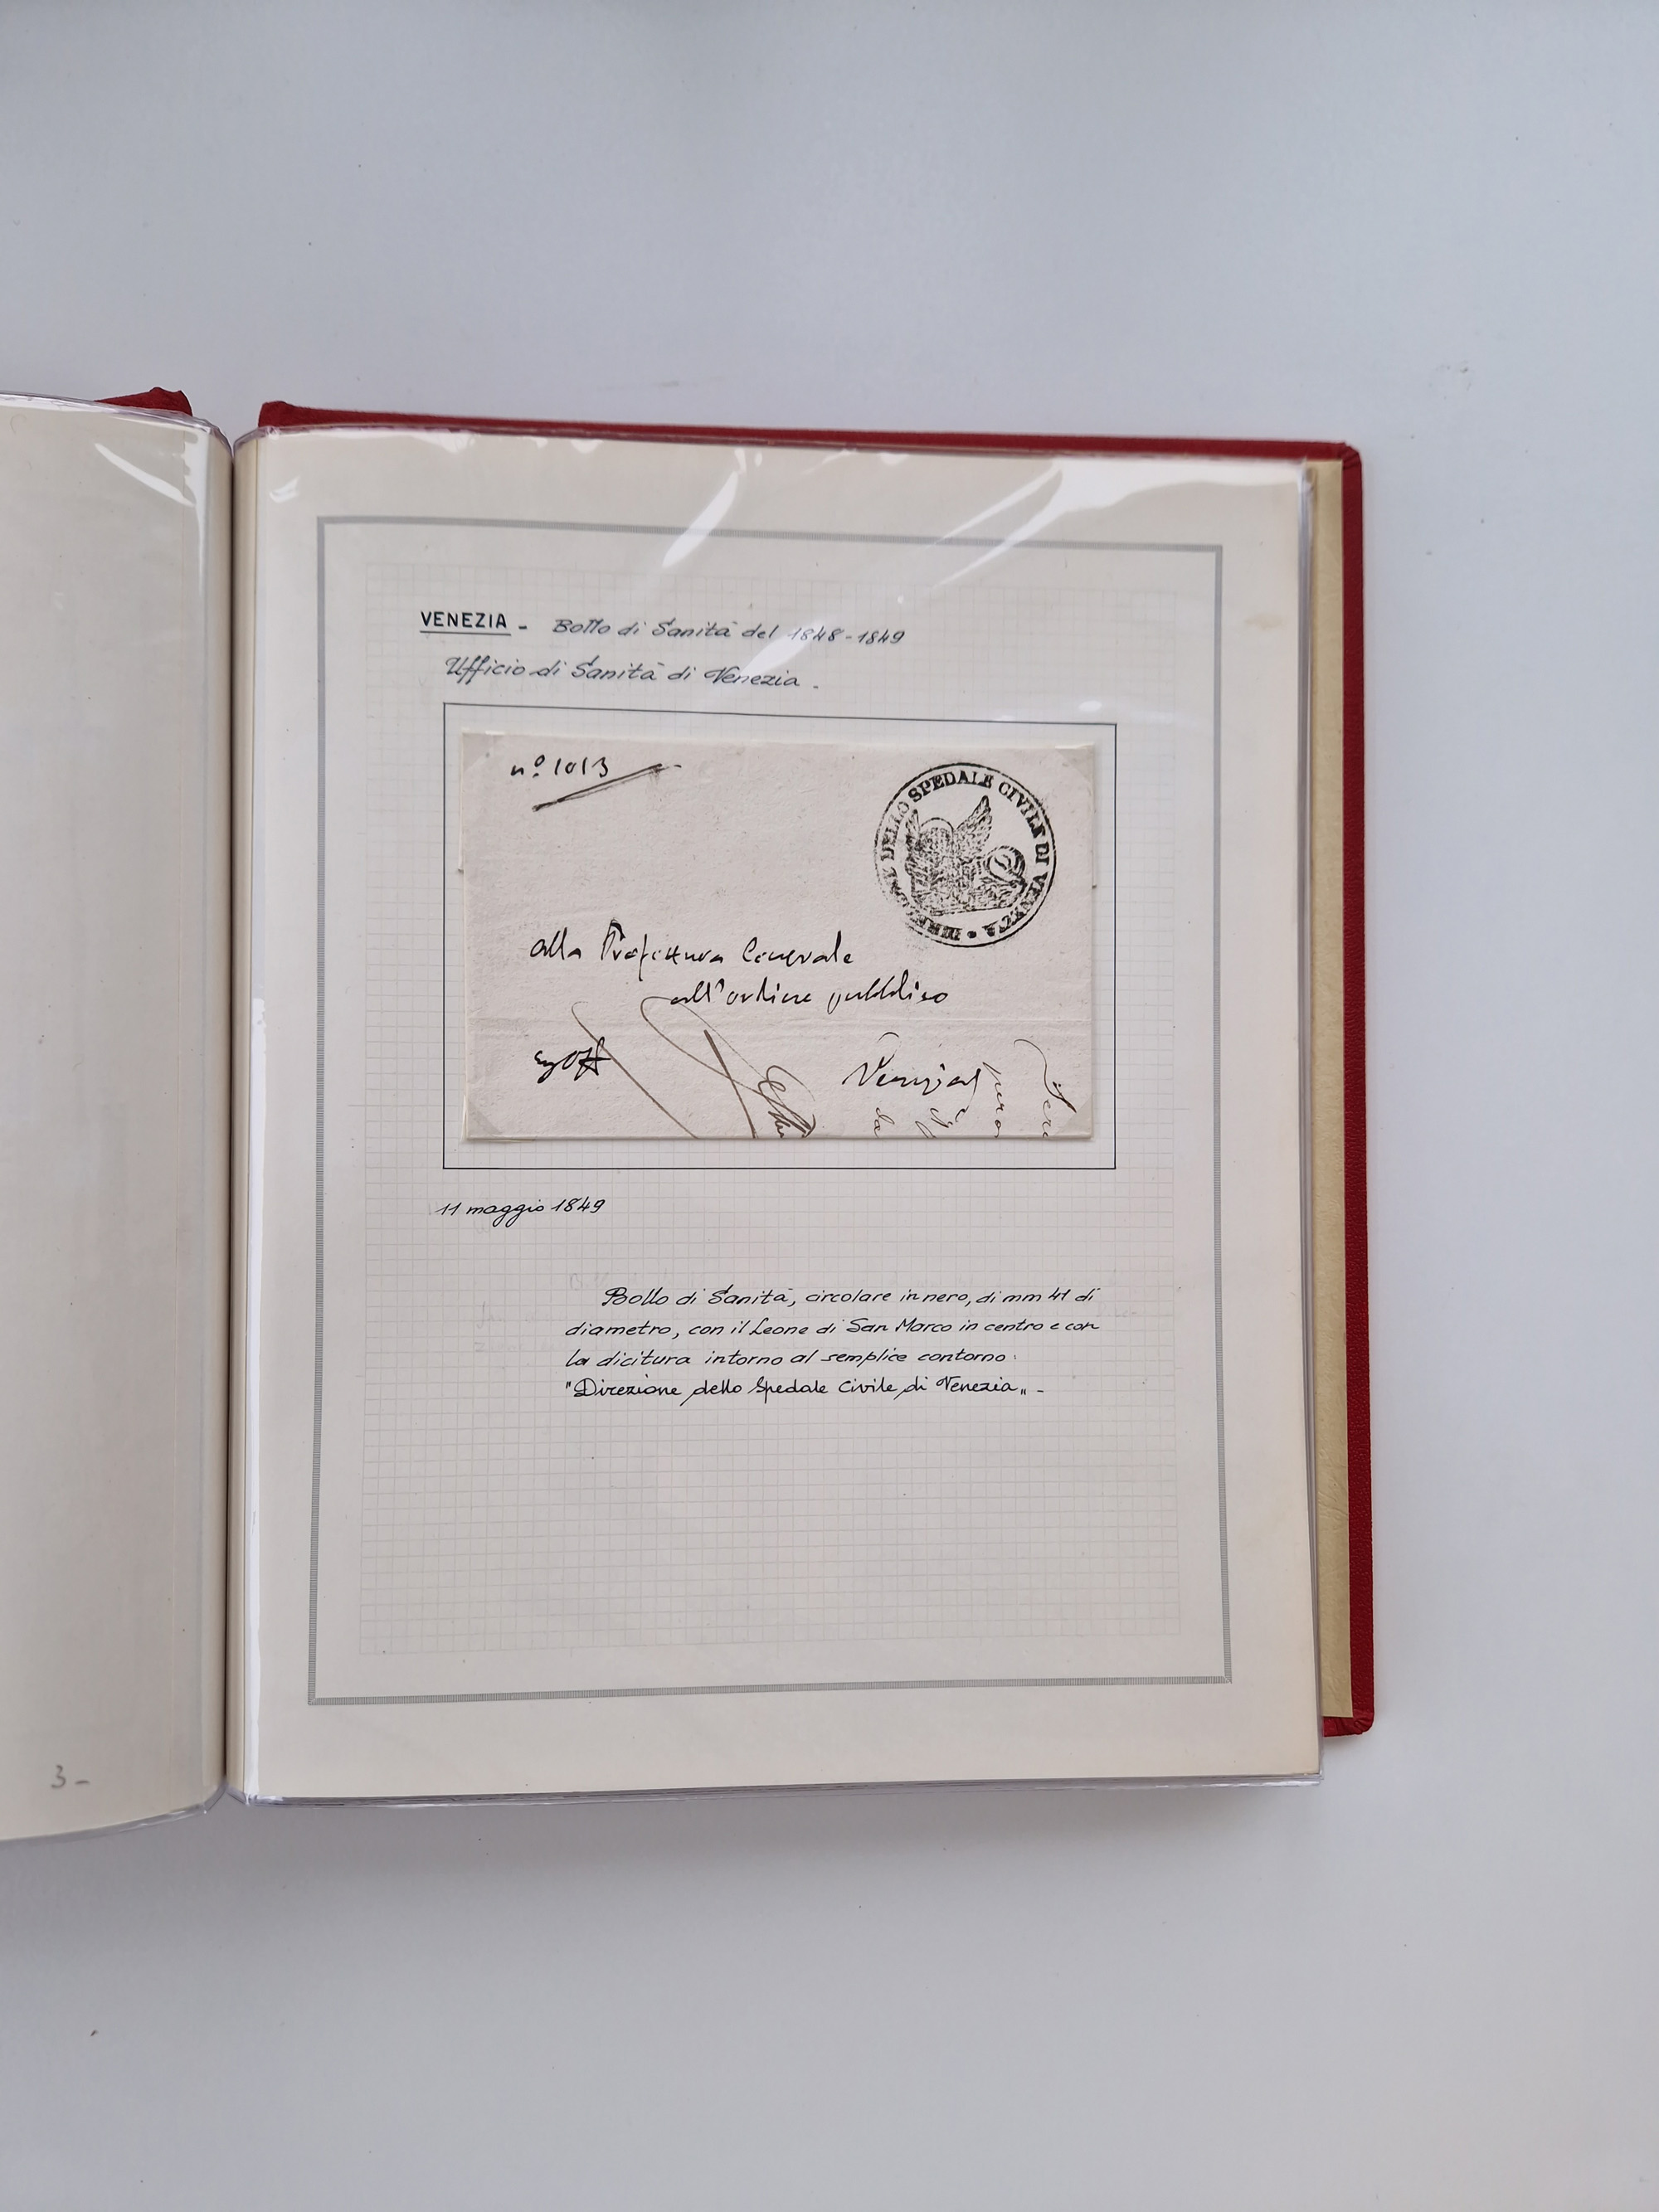 VENEZIA - Bollo di Sanità del 1848-1849
Ufficio di Sanità di Venezia.
nº 1013
DELLO SPEDALE CIVILE DI VENEZIA
alla Prefettura Generale
all'ordine pubblico
Venezia
11 maggio 1849
Bollo di Sanità, circolare in nero, di mm 41 di
diametro, con il Leone di San Marco in centro e con
la dicitura intorno al semplice contorno:
"Direzione dello Spedale Civile di Venezia„ -
3-